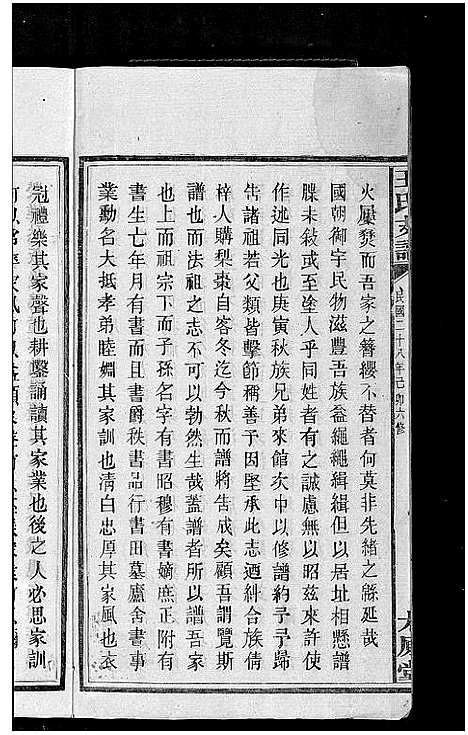 王氏族譜
民國二十八年己卯六修
大鳳堂
火屢燹而吾家之簪纓不替者何莫非先緒之緜延哉
國朝御宇民物滋豐吾族益繩繩緝緝但以居址相懸譜
牒未敍或至塗人乎同姓者有之誠慮無以昭茲來許使
作述同光也庚寅秋族兄弟來館次中以修譜約予予歸
告諸祖若父類皆擊節稱善予因堅承此志迺糾合族倩
梓人購梨棗自客冬迄今秋而譜將告成矣顧吾謂覽斯
譜也而法祖之志不可以勃然生哉蓋譜者所以譜吾家
也上而祖宗下而子孫名字有書昭穆有書嫡庶正附有
書生七年月有書而書爵秩書品行書田墓廬舍書事
業勳名大抵孝弟睦婣其家訓也清白忠厚其家風也衣
冠禮樂其家聲也耕鑿誦讀其家業也後之人必思家訓